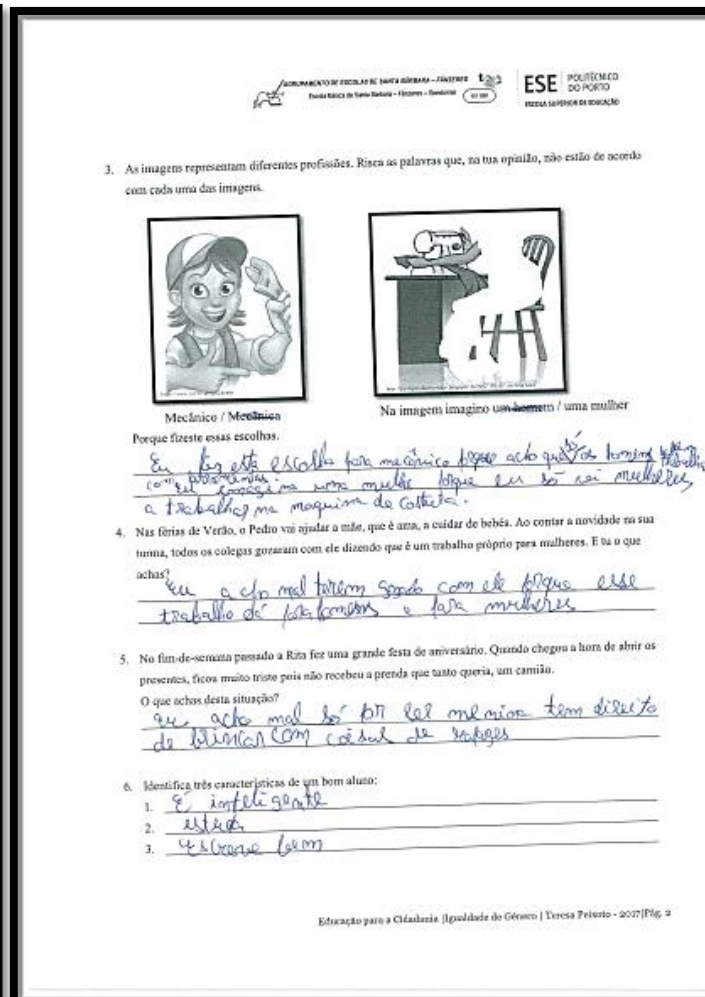 AGRUPAMENTO DE ESCOLAS DE SANTA BÁRBARA – FÂNZERES
Escola Básica de Santa Bárbara – Fânzeres – Gondomar
ESE POLITÉCNICO
DO PORTO
ESCOLA SUPERIOR DE EDUCAÇÃO
3. As imagens representam diferentes profissões. Risca as palavras que, na tua opinião, não estão de acordo
com cada uma das imagens.
Mecânico / Mecânica
Na imagem imagino um homem / uma mulher
Porque fizeste essas escolhas.
Eu fiz esta escolha para mecânico porque acho que só os homens trabalha
com
eu imagino uma mulher porque eu só vi mulheres
a trabalhar na maquina de costura.
4. Nas férias de Verão, o Pedro vai ajudar a mãe, que é ama, a cuidar de bebés. Ao contar a novidade na sua
turma, todos os colegas gozaram com ele dizendo que é um trabalho próprio para mulheres. E tu o que
achas?
Eu acho mal terem gozado com ele porque esse
trabalho dá para homens e para mulheres
5. No fim-de-semana passado a Rita fez uma grande festa de aniversário. Quando chegou a hora de abrir os
presentes, ficou muito triste pois não recebeu a prenda que tanto queria, um camião.
O que achas desta situação?
eu acho mal só por ser menina tem direito
de brincar com coisas de rapazes
6. Identifica três características de um bom aluno:
1. É inteligente
2. estuda
3. Escreve bem
Educação para a Cidadania |Igualdade de Género | Teresa Peixoto - 2017|Pág. 2